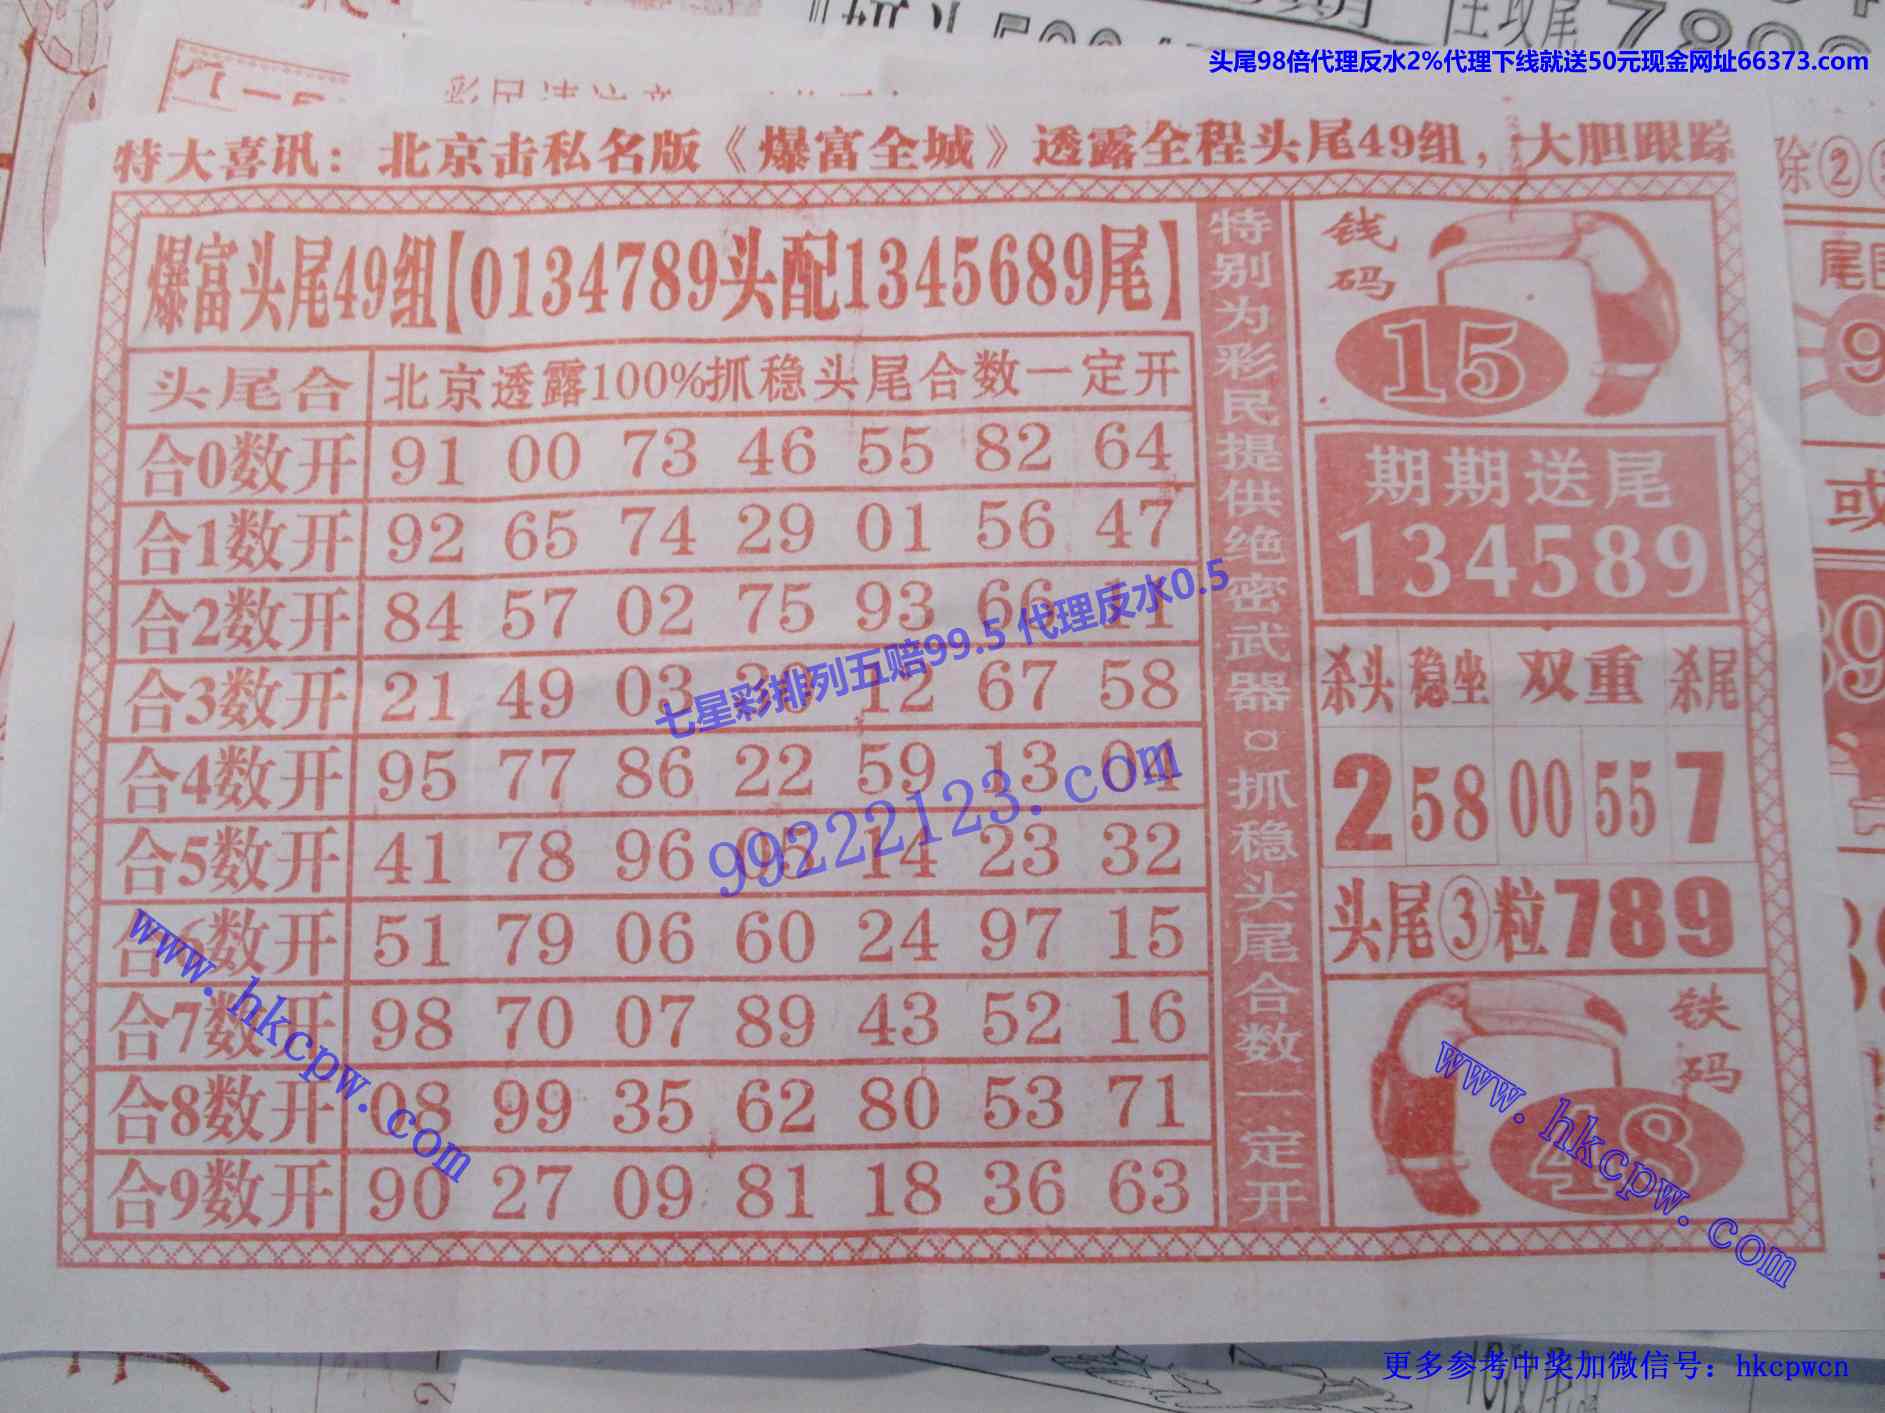 头尾98倍代理反水2%代理下线就送50元现金网址66373.com
特大喜讯：北京击私名版《爆富全城》透露全程头尾49组，大胆跟踪
爆富头尾49组【0134789头配1345689尾】
头尾合 北京透露100%抓稳头尾合数一定开
合0数开 91 00 73 46 55 82 64
合1数开 92 65 74 29 01 56 47
合2数开 84 57 02 75 93 66 11
合3数开 21 49 03 30 12 67 58
合4数开 95 77 86 22 59 13 04
合5数开 41 78 96 05 14 23 32
合6数开 51 79 06 60 24 97 15
合7数开 98 70 07 89 43 52 16
合8数开 08 99 35 62 80 53 71
合9数开 90 27 09 81 18 36 63
特别为彩民提供绝密武器¤抓稳头尾合数一定开
钱码
15
期期送尾
134589
杀头 稳坐 双重 杀尾
2 58 00 55 7
头尾③粒789
铁码
48
七星彩排列五赔99.5 代理反水0.5
99222123.com
www.hkcpw.com
www.hkcpw.com
更多参考中奖加微信号：hkcpwcn